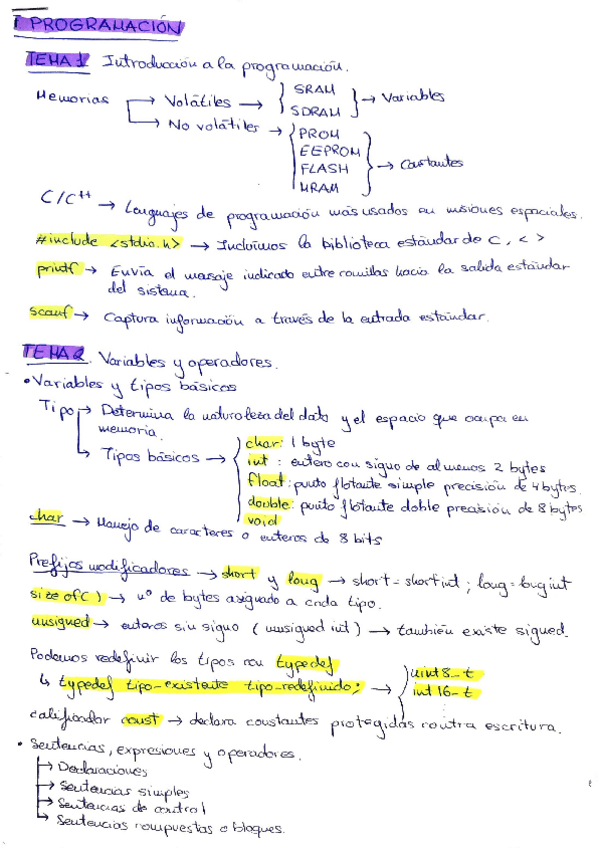 I PROGRAMACIÓN
TEMA 1 Introducción a la programación.
Memorias → Volátiles → SRAM
SDRAM → Variables
→ No volátiles → PROM
EEPROM
FLASH
MRAM → Constantes
C/C++ → Lenguajes de programación más usados en misiones espaciales.
#include <stdio.h> → Incluimos la biblioteca estándar de C, < >
printf → Envía el mensaje indicado entre comillas hacia la salida estándar
del sistema.
scanf → Captura información a través de la entrada estándar.
TEMA 2. Variables y operadores.
• Variables y tipos básicos
Tipo → Determina la naturaleza del dato y el espacio que ocupa en
memoria.
→ Tipos básicos → char: 1 byte
int : entero con signo de al menos 2 bytes
float: punto flotante simple precisión de 4 bytes.
double: punto flotante doble precisión de 8 bytes
void
char → Manejo de caracteres o enteros de 8 bits
Prefijos modificadores → short y long → short = short int ; long = long int
sizeof( ) → nº de bytes asignado a cada tipo.
unsigned → enteros sin signo ( unsigned int ) → también existe signed.
Podemos redefinir los tipos con typedef
↳ typedef tipo-existente tipo-redefinido; → uint8_t
int16_t
calificador const → declara constantes protegidas contra escritura.
• Sentencias, expresiones y operadores.
→ Declaraciones
→ Sentencias simples
→ Sentencias de control
→ Sentencias compuestas o bloques.